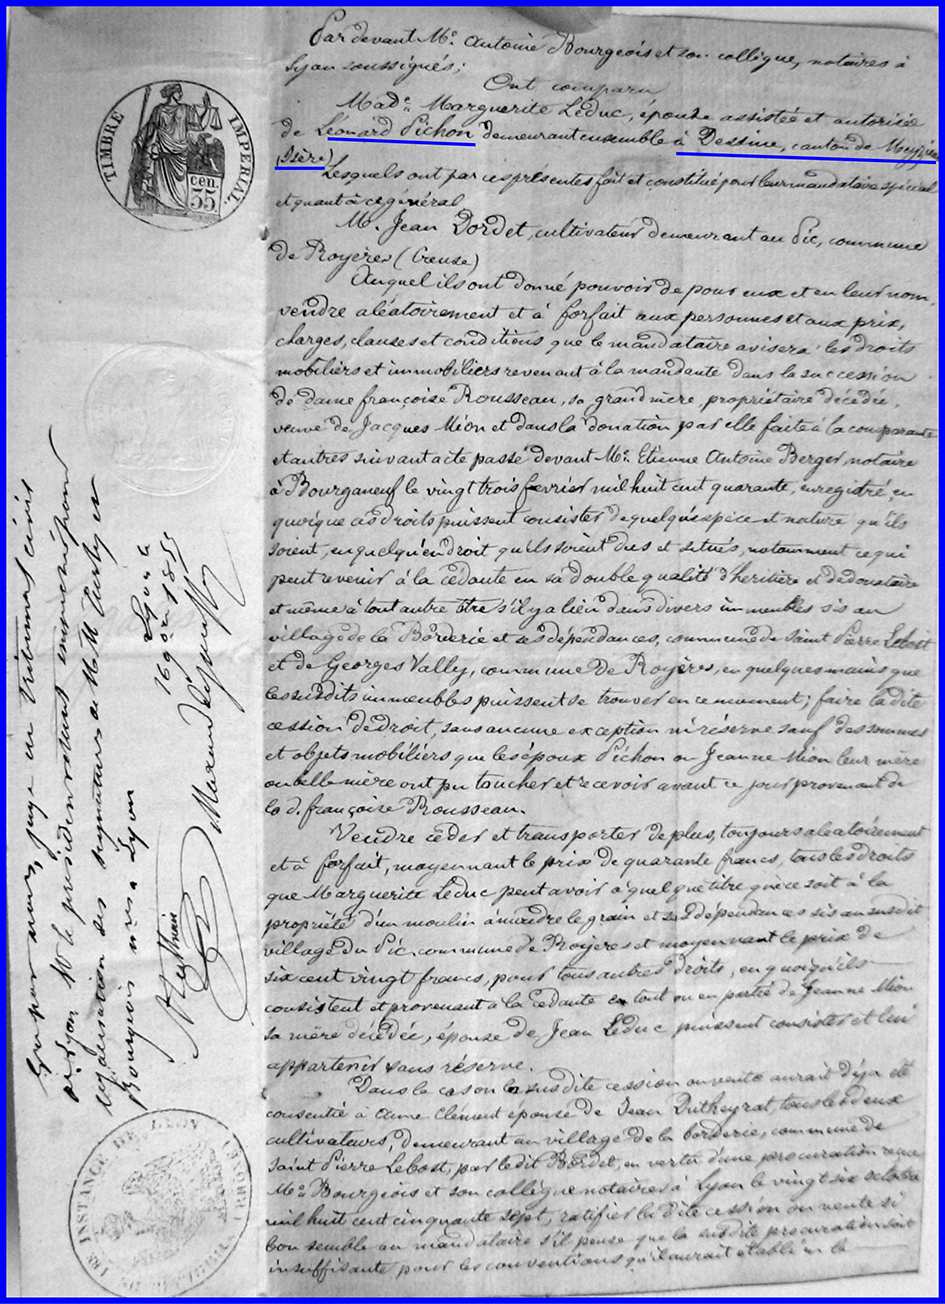 Par devant Me. Antoine Bourgeois et son collègue, notaires à
Lyon soussignés;
Ont comparu
Made. Marguerite Leduc, épouse assistée et autorisée
de Léonard Pichon demeurant ensemble à Dessine, canton de
(Isère)
Lesquels ont par ces présentes fait et constitué pour leur mandataire spécial
et quant à ce général
M. Jean Dordet, cultivateur demeurant au Pic, commune
de Royères (Creuse)
Auquel ils ont donné pouvoir de pour eux et en leur nom,
vendre aléatoirement et à forfait aux personnes et aux prix,
charges, clauses et conditions que le mandataire avisera les droits
mobiliers et immobiliers revenant à la mandante dans la succession
de dame françoise Rousseau, sa grand mère, propriétaire décédée,
veuve de Jacques Mion et dans la donation par elle faite à la comparante
et autres suivant acte passé devant Me. Etienne Antoine Berger, notaire
à Bourganeuf le vingt trois fevrier mil huit cent quarante, enregistré, en
quoique ces droits puissent consister de quelqu'espèce et nature qu'ils
soient, en quelqu'endroit qu'ils soient dus et situés, notamment ce qui
peut revenir à la cédante en sa double qualité d'heritière et de donataire
et même à tout autre titre s'il y a lieu dans divers immeubles sis au
village de la Borderie et ses dépendances, commune de Saint Pierre Lebost
et de Georges Vally, commune de Royères, en quelques mains que
les susdits immeubles puissent se trouver en ce moment; faire la dite
cession de droit, sans aucune exception ni réserve sauf des sommes
et objets mobiliers que les époux Pichon ou Jeanne Mion leur mère
ou belle mère ont pu toucher et recevoir avant ce jour provenant de
la d. françoise Rousseau.
Vendre céder et transporter de plus, toujours aléatoirement
et à forfait, moyennant le prix de quarante francs, tous les droits
que Marguerite Leduc peut avoir à quelque titre que ce soit à la
propriété d'un moulin à moudre le grain et ses dépendances sis au susdit
village du Pic, commune de Royères et moyennant le prix de
six cent vingt francs, pour tous autres droits, en quoiqu'ils
consistent et provenant à la cédante en tout ou en partie de Jeanne Mion
sa mère décédée, épouse de Jean Leduc puissent consister et lui
appartenir sans réserve.
Dans le cas où la susdite cession ou vente aurait déjà été
consentie à Anne Clément épouse de Jean Dutheyrat, tous les deux
cultivateurs, demeurant au village de la borderie, commune de
Saint Pierre Lebost, par le dit Bordet, en vertu d'une procuration reçue
Me. Bourgeois et son collègue notaires à Lyon le vingt six octobre
mil huit cent cinquante sept, ratifier la dite cession ou vente si
bon semble au mandataire s'il pense que la susdite procuration soit
insuffisante pour les conventions qu'il aurait établi en la
TIMBRE IMPERIAL.
35 cen.
Vu par nous, juge au tribunal civil
de Lyon Mr le président
légalisation des signatures de MM et
Bourgeois nres à Lyon
Lyon le
INSTANCE DE LYON